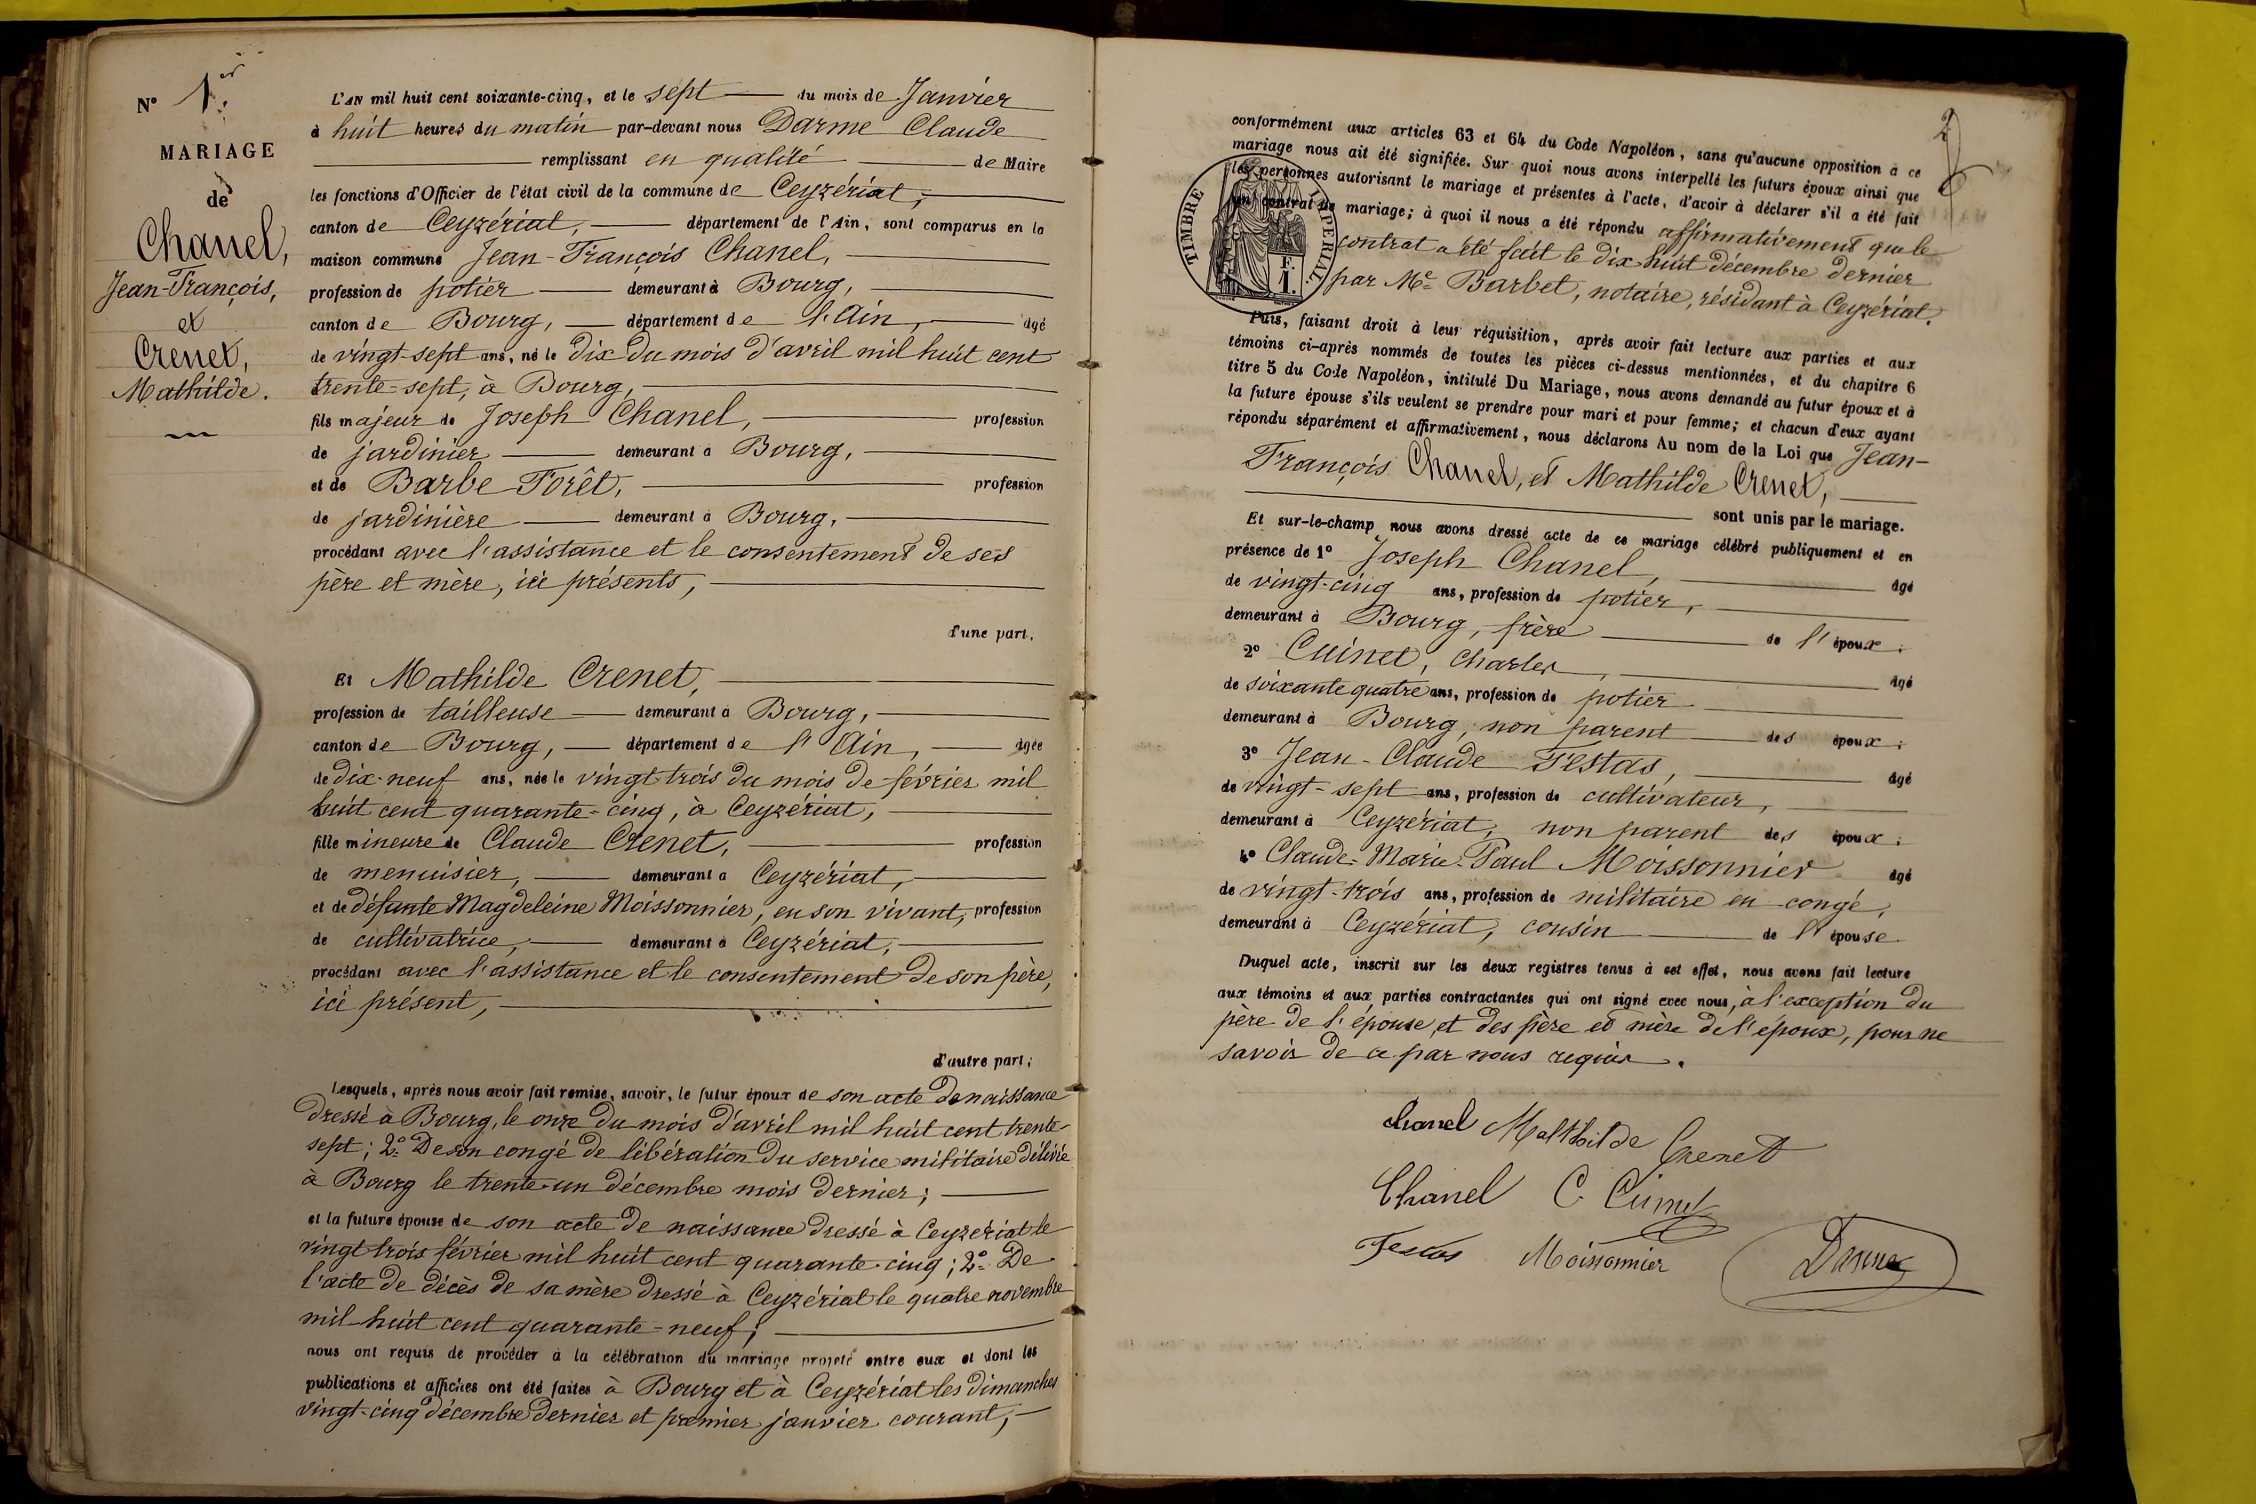 N° 1er.
MARIAGE
de
Chanel,
Jean-François,
et
Crenet,
Mathilde.
L'AN mil huit cent soixante-cinq, et le sept du mois de Janvier
à huit heures du matin par-devant nous Darme Claude
remplissant en qualité de Maire
les fonctions d'Officier de l'état civil de la commune de Ceyzériat,
canton de Ceyzériat, département de l'Ain, sont comparus en la
maison commune Jean-François Chanel,
profession de potier demeurant à Bourg,
canton de Bourg, département de l'Ain, âgé
de vingt-sept ans, né le dix du mois d'avril mil huit cent
trente-sept, à Bourg,
fils majeur de Joseph Chanel, profession
de jardinier demeurant à Bourg,
et de Barbe Forêt, profession
de jardinière demeurant à Bourg,
procédant avec l'assistance et le consentement de ses
père et mère, ici présents,
d'une part.
Et Mathilde Crenet,
profession de tailleuse demeurant à Bourg,
canton de Bourg, département de l'Ain, âgée
de dix-neuf ans, née le vingt trois du mois de février mil
huit cent quarante-cinq, à Ceyzériat,
fille mineure de Claude Crenet, profession
de menuisier, demeurant à Ceyzériat,
et de défunte Magdeleine Moissonnier, en son vivant, profession
de cultivatrice, demeurant à Ceyzériat,
procédant avec l'assistance et le consentement de son père,
ici présent,
d'autre part;
Lesquels, après nous avoir fait remise, savoir, le futur époux de son acte de naissance
dressé à Bourg, le onze du mois d'avril mil huit cent trente
sept; 2° De son congé de libération du service militaire délivré
à Bourg le trente-un décembre mois dernier;
et la future épouse de son acte de naissance dressé à Ceyzériat le
vingt trois février mil huit cent quarante-cinq; 2° De
l'acte de décès de sa mère dressé à Ceyzériat le quatre novembre
mil huit cent quarante-neuf;
nous ont requis de procéder à la célébration du mariage projeté entre eux et dont les
publications et affiches ont été faites à Bourg et à Ceyzériat les dimanches
vingt-cinq décembre dernier et premier janvier courant,
2
conformément aux articles 63 et 64 du Code Napoléon, sans qu'aucune opposition à ce
mariage nous ait été signifiée. Sur quoi nous avons interpellé les futurs époux ainsi que
les personnes autorisant le mariage et présentes à l'acte, d'avoir à déclarer s'il a été fait
un contrat de mariage; à quoi il nous a été répondu affirmativement que le
contrat a été fait le dix-huit décembre dernier
par Me Barbet, notaire, résidant à Ceyzériat.
TIMBRE IMPERIAL
F.
1.
Puis, faisant droit à leur réquisition, après avoir fait lecture aux parties et aux
témoins ci-après nommés de toutes les pièces ci-dessus mentionnées, et du chapitre 6
titre 5 du Code Napoléon, intitulé Du Mariage, nous avons demandé au futur époux et à
la future épouse s'ils veulent se prendre pour mari et pour femme; et chacun d'eux ayant
répondu séparément et affirmativement, nous déclarons Au nom de la Loi que Jean-
François Chanel, et Mathilde Crenet,
sont unis par le mariage.
Et sur-le-champ nous avons dressé acte de ce mariage célébré publiquement et en
présence de 1° Joseph Chanel, âgé
de vingt-cinq ans, profession de potier,
demeurant à Bourg, frère de l'époux;
2° Cuinet, Charles, âgé
de soixante quatre ans, profession de potier
demeurant à Bourg, non parent des époux;
3° Jean-Claude Festas, âgé
de vingt-sept ans, profession de cultivateur,
demeurant à Ceyzériat, non parent des époux;
4° Claude-Marie-Paul Moissonnier âgé
de vingt-trois ans, profession de militaire en congé,
demeurant à Ceyzériat, cousin de l'épouse.
Duquel acte, inscrit sur les deux registres tenus à cet effet, nous avons fait lecture
aux témoins et aux parties contractantes qui ont signé avec nous, à l'exception du
père de l'épouse, et des père et mère de l'époux, pour ne
savoir de ce par nous requis.
Chanel Malthilde Crenet
Chanel C Cuinet
Festas Moissonnier Darme